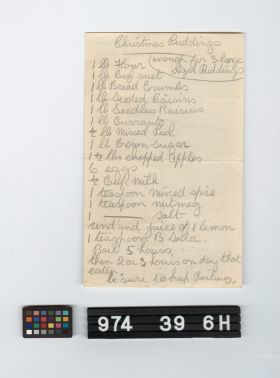 Christmas Puddings
1 lb Flour (enough for 3 large
1 lb Beef suet sized Puddings
1 lb Bread Crumbs
1 lb Seeded Raisins
1 lb Seedless Raisins
1 lb Currants
½ lb Mixed Peel
1 lb Brown Sugar
1 ½ lbs chopped Apples
6 eggs
½ Cup Milk
1 teaspoon mixed spice
1 teaspoon nutmeg
1 Salt
rind and juice of 1 lemon
1 teaspoon B Soda.
Boil 5 hours,
then 2 or 3 hours on day that
eaten
be sure to keep Boiling.
974 39 6H